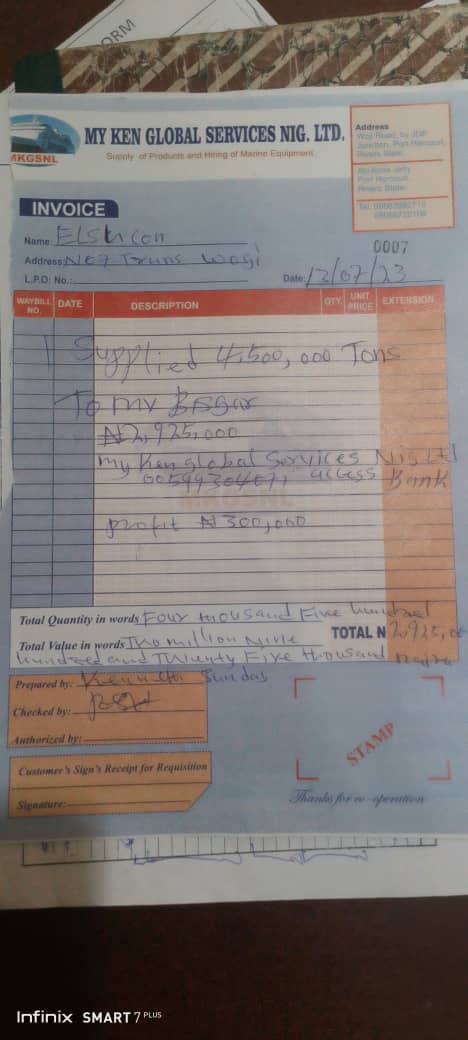 ORM
MKGSNL
MY KEN GLOBAL SERVICES NIG. LTD.
Supply of Products and Hiring of Marine Equipment.
Address
Woji Road, by JDP
Junction, Port Harcourt,
Rivers State.
Port Harcourt
Rivers State
Tel:
INVOICE
Name:
0007
Address: No7 Trans Wogi
L.P.D: No.:
Date: 12/07/23
WAYBILL NO.
DATE
DESCRIPTION
QTY.
UNIT PRICE
EXTENSION
Supplied 4,500,000 Tons
To my
₦2,925,000
My Ken global Services Nig Ltd
access Bank
profit ₦300,000
Total Quantity in words Four thousand Five hundred
Total Value in words Two million Nine
TOTAL N 2,925,00
hundred and Twenty Five thousand naira
Prepared by: Sunday
Checked by:
Authorized by:
STAMP
Customer's Sign's Receipt for Requisition
Signature:
Thanks for co-operation
Infinix SMART 7 PLUS